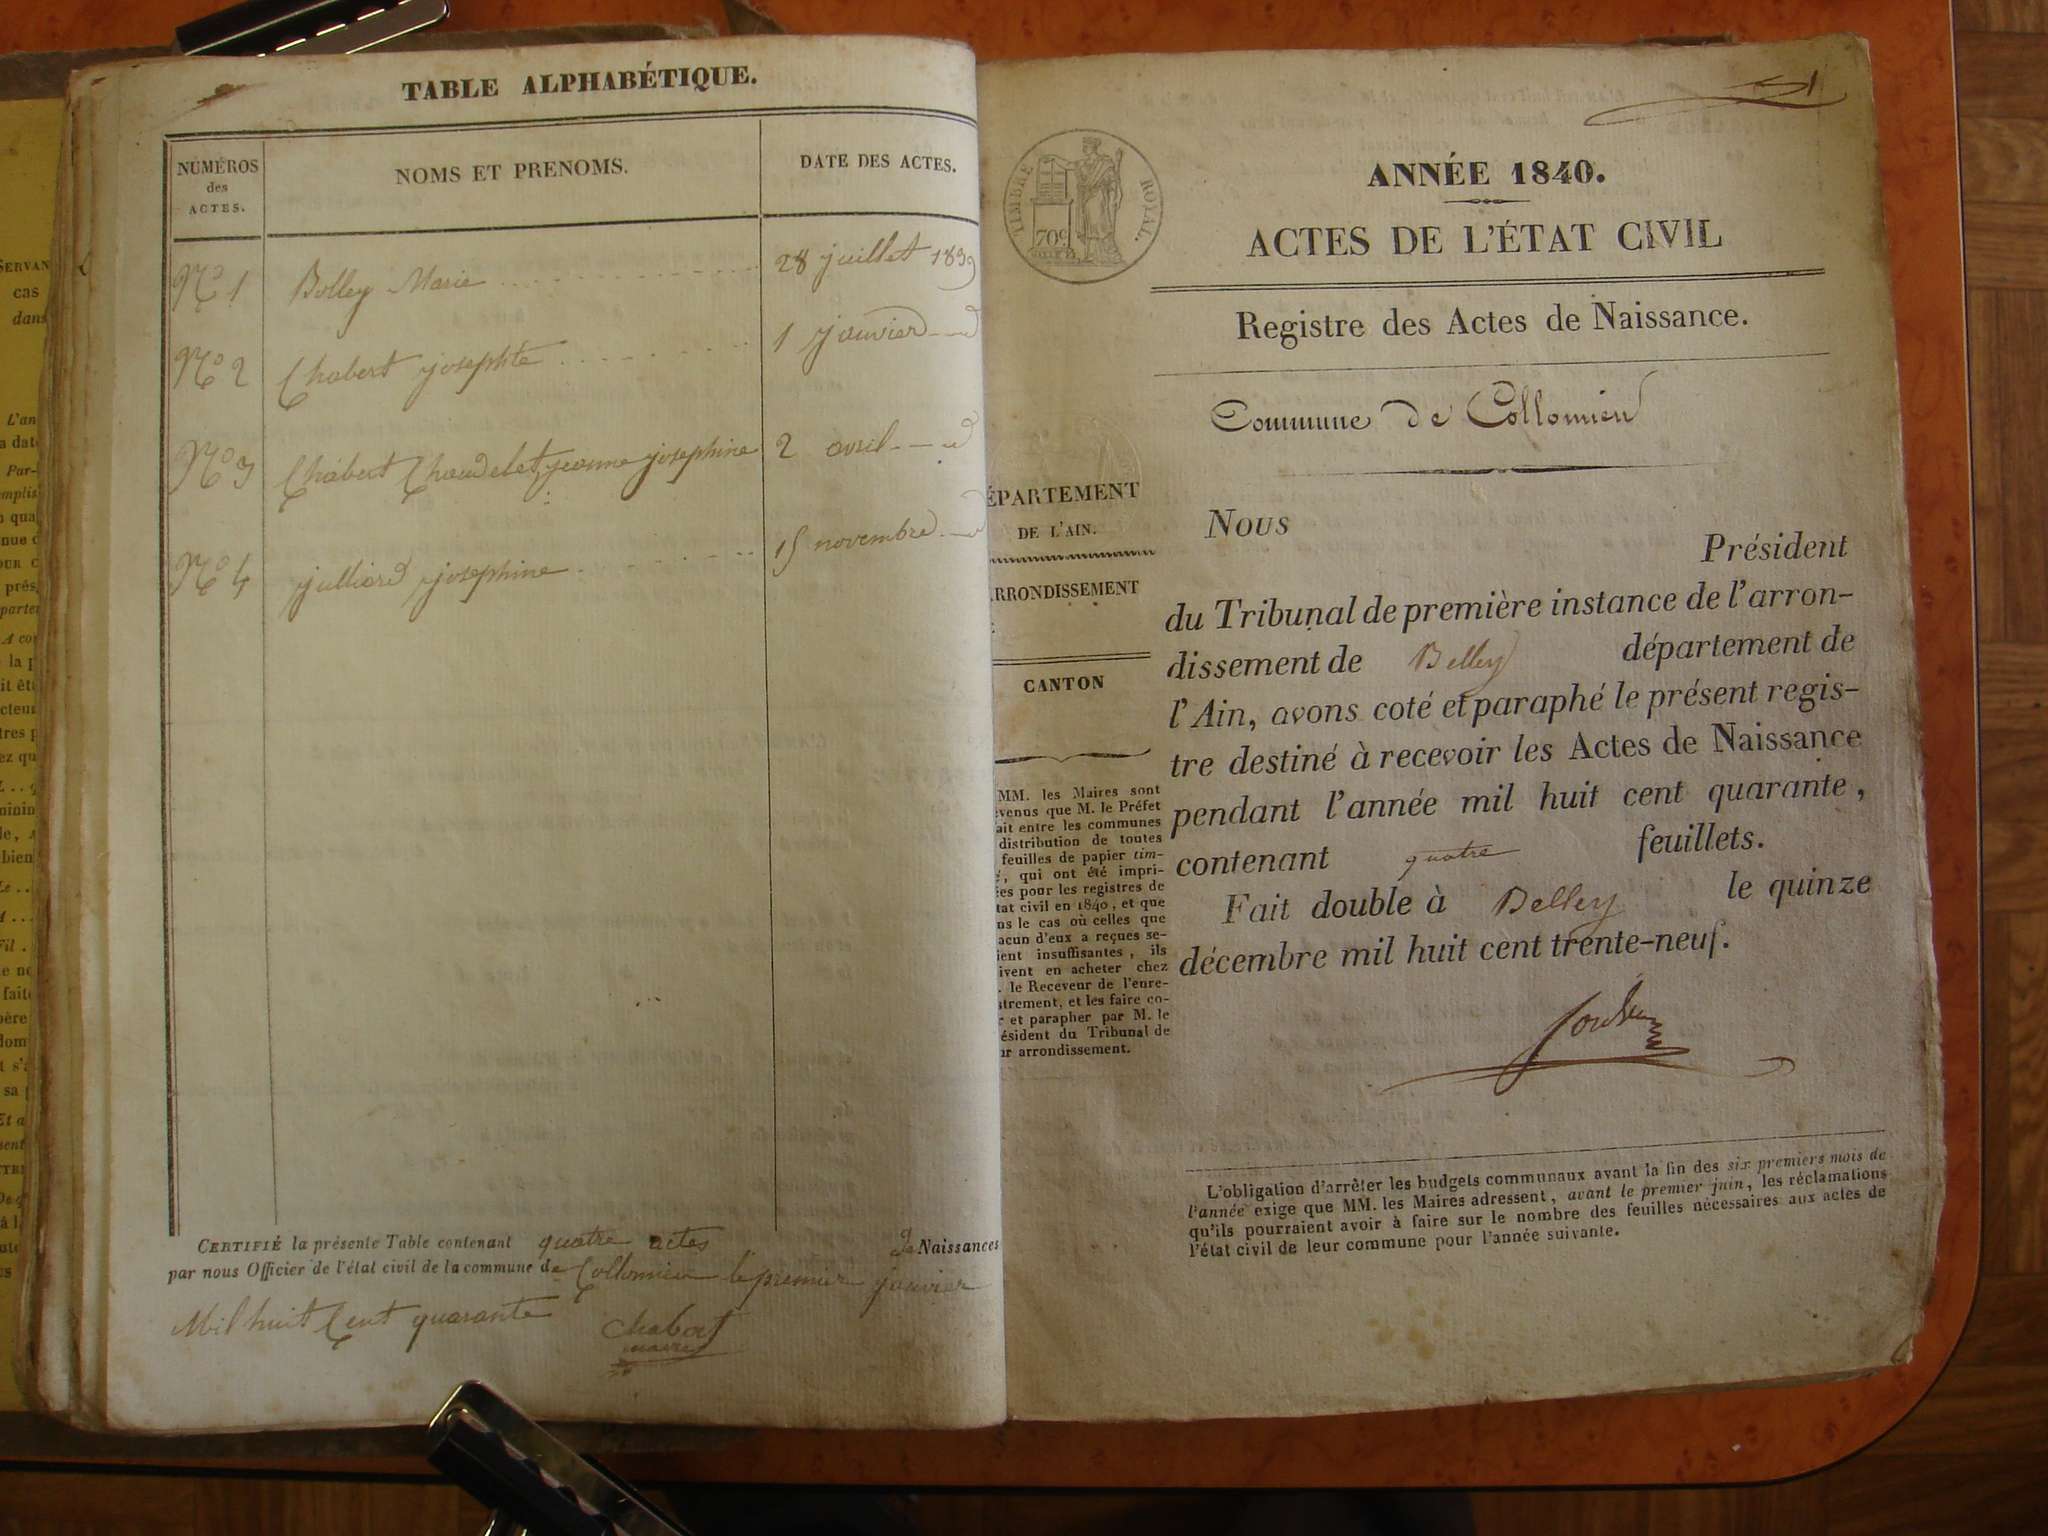 TABLE ALPHABÉTIQUE.
NUMÉROS
des
ACTES.
NOMS ET PRENOMS.
DATE DES ACTES.
No 1 Bolley Marie 28 juillet 1839
No 2 Chabert josephte 1 janvier d
No 3 Chabert Chaudelet, jeanne josephine 2 avril d
No 4 julliard josephine 15 novembre d
CERTIFIÉ la présente Table contenant quatre actes de Naissances
par nous Officier de l'état civil de la commune de Collomieu le premier janvier
Mil huit Cent quarante
Chabert
maire
51
TIMBRE ROYAL.
70c
ANNÉE 1840.
ACTES DE L'ÉTAT CIVIL
Registre des Actes de Naissance.
Commune de Collomieu
ÉPARTEMENT
DE L'AIN.
RRONDISSEMENT
CANTON
MM. les Maires sont
venus que M. le Préfet
ait entre les communes
distribution de toutes
feuilles de papier tim-
é, qui ont été impri-
ées pour les registres de
tat civil en 1840, et que
ns le cas où celles que
acun d'eux a reçues se-
ient insuffisantes, ils
ivent en acheter chez
. le Receveur de l'enre-
strement, et les faire co-
r et parapher par M. le
ésident du Tribunal de
ur arrondissement.
Nous
Président
du Tribunal de première instance de l'arron-
dissement de Belley département de
l'Ain, avons coté et paraphé le présent regis-
tre destiné à recevoir les Actes de Naissance
pendant l'année mil huit cent quarante,
contenant quatre feuillets.
Fait double à Belley le quinze
décembre mil huit cent trente-neuf.
L'obligation d'arrêter les budgets communaux avant la fin des six premiers mois de
l'année exige que MM. les Maires adressent, avant le premier juin, les réclamations
qu'ils pourraient avoir à faire sur le nombre des feuilles nécessaires aux actes de
l'état civil de leur commune pour l'année suivante.